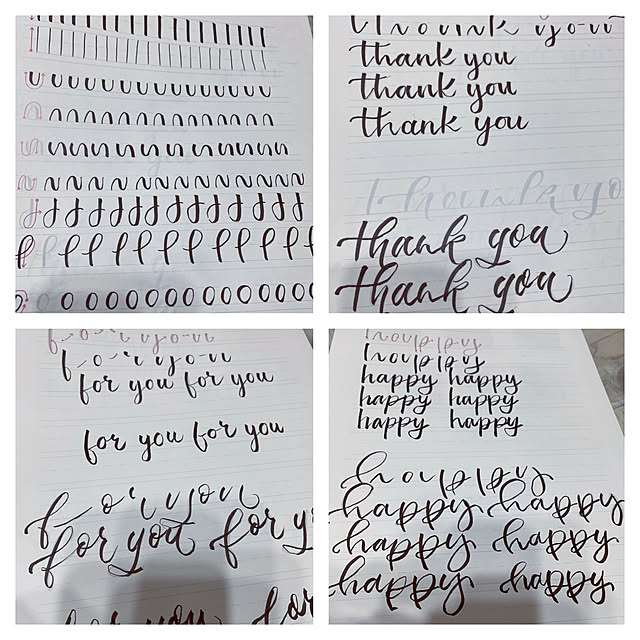 thank you
thank you
thank you
thank you
thank you
for you for you
for you for you
for you
for you for y
for you for
happy
happy happy
happy happy
happy happy
happy
happy happy
happy happy
happy happy